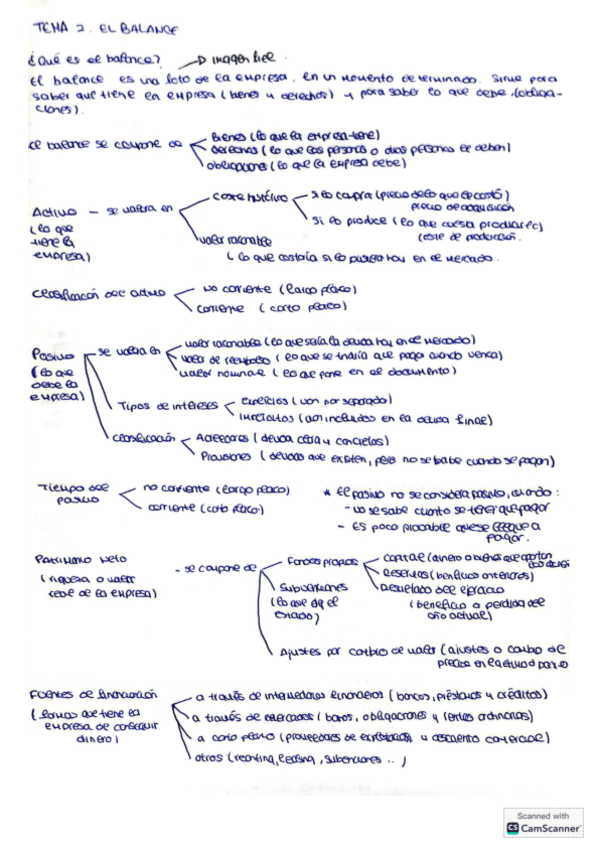 TEMA 2. EL BALANCE
¿Qué es el balance? → imagen fiel.
El balance es una foto de la empresa, en un momento determinado. Sirve para
saber que tiene la empresa (bienes y derechos) y para saber lo que debe (obliga-
ciones).
El balance se compone de
Bienes (lo que la empresa tiene)
derechos (lo que las personas o otras personas le deben)
obligaciones (lo que la empresa debe)
Activo - se valora en
(lo que
tiene la
empresa)
coste histórico
si lo compra (precio de lo que le costó)
precio de adquisición
si lo produce (lo que cuesta producirlo)
(coste de producción.
valor razonable
(lo que costaría si lo pusiera hoy en el mercado.
Clasificación del activo
no corriente (largo plazo)
corriente (corto plazo)
Pasivo
(lo que
debe la
empresa)
se valora en
valor razonable (lo que sería la deuda hoy en el mercado)
valor de reembolso (lo que se tendría que pagar cuando venza)
valor nominal (lo que pone en el documento)
Tipos de intereses
explícitos (van por separado)
implícitos (van incluidos en la deuda final)
clasificación
Acreedores (deuda cierta y concretos)
Provisiones (deudas que existen, pero no se sabe cuando se pagan)
Tiempo del
pasivo
no corriente (largo plazo)
corriente (corto plazo)
* El pasivo no se considera pasivo, cuando:
- no se sabe cuanto se tener que pagar
- es poco probable que se llegue a
pagar.
PATRIMONIO NETO
(riqueza o valor
real de la empresa)
- se compone de
Fondos propios
capital (dinero o bienes que aportan
los socios)
Reservas (beneficios anteriores)
Resultado del ejercicio
(beneficio o perdida del
año actual)
Subvenciones
(lo que da el
estado)
Ajustes por cambio de valor (ajustes o cambio de
precios en el activo o pasivo
Fuentes de financiación
(formas que tiene la
empresa de conseguir
dinero)
a través de intermediarios financieros (bancos, préstamos y créditos)
a través de mercados (bonos, obligaciones y ordinarias)
a corto plazo (proveedores de explotación y descuento comercial)
otros (renting, leasing, subvenciones ..)
Scanned with
CS CamScanner